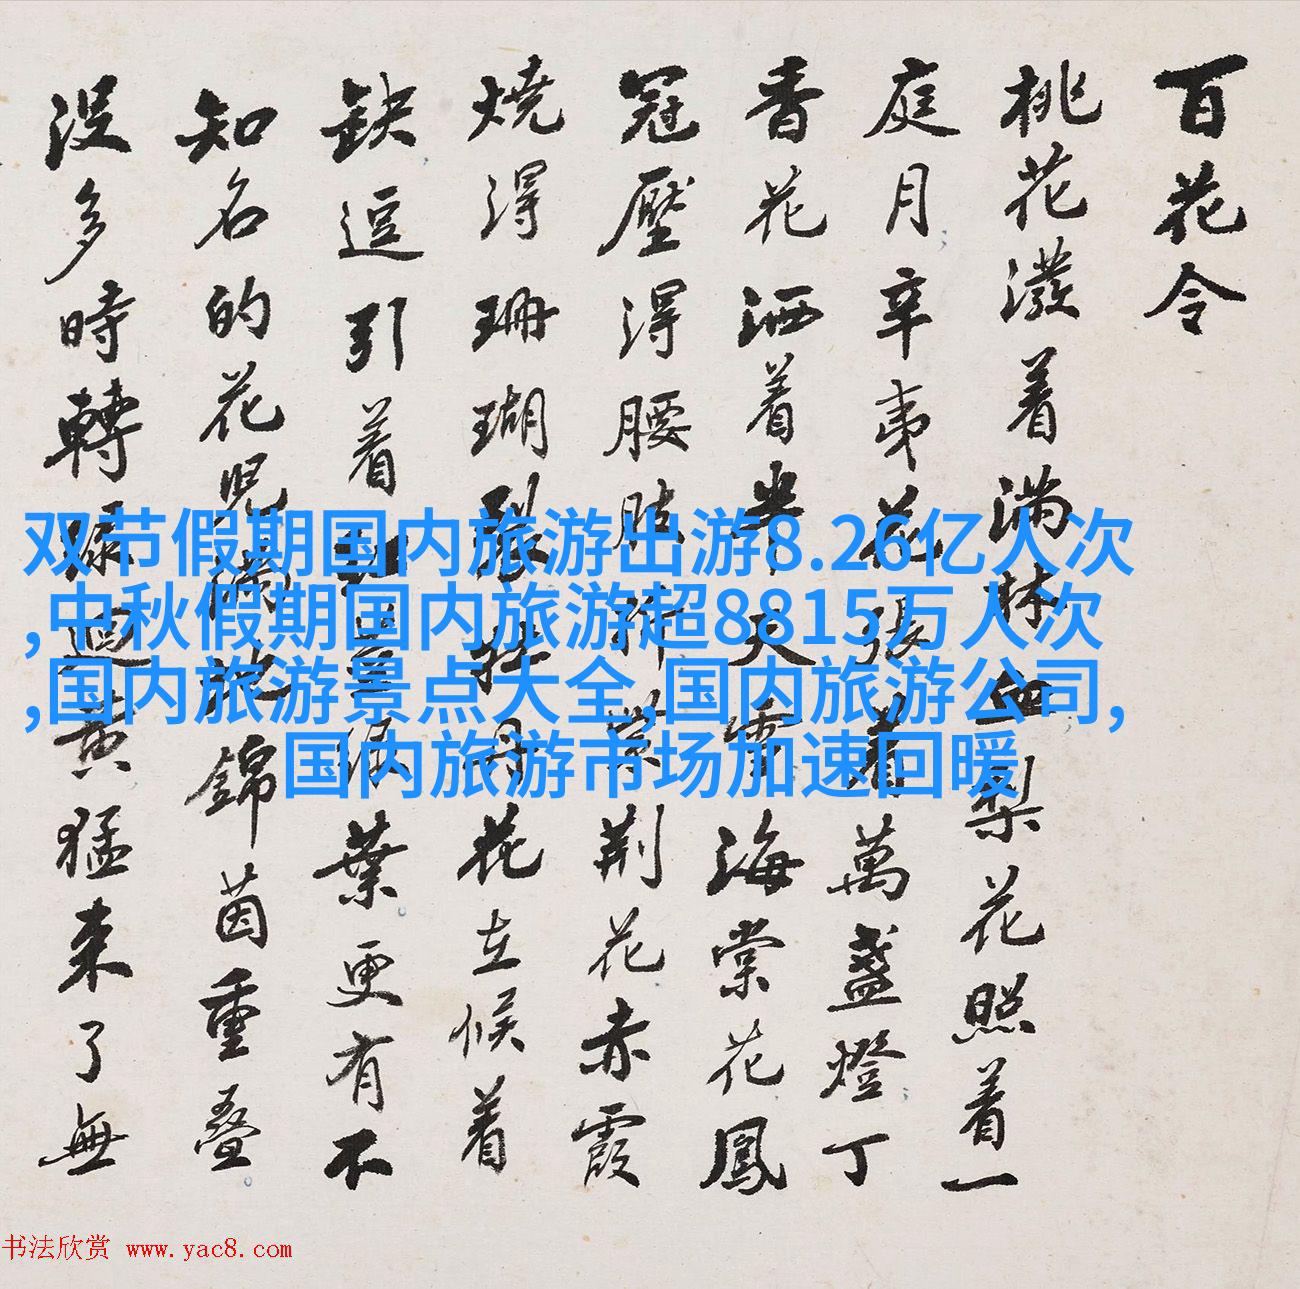 百花令
桃花潑着满林血梨花照着一
庭月辛夷花張着萬盞燈丁
香花洒着半天雪海棠花鳳
冠壓得腰肢折紫荆花赤霞
燒得珊瑚裂牡丹花立候着
缺逗引着葉更有不
知名的花兒滿地錦茵重叠
没多時轉綠迴黄猛来了無
双节假期国内旅游出游8.26亿人次
,中秋假期国内旅游超8815万人次
,国内旅游景点大全,国内旅游公司,
国内旅游市场加速回暖
书法欣赏 www.yac8.com